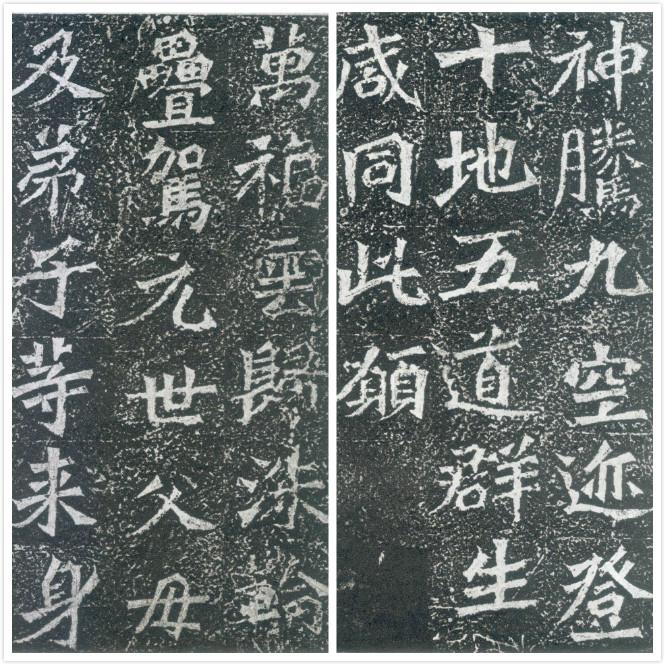 萬福雲歸洙輪
疊駕元世父母
及弟子等来身
神騰九空迹登
十地五道群生
咸同此願